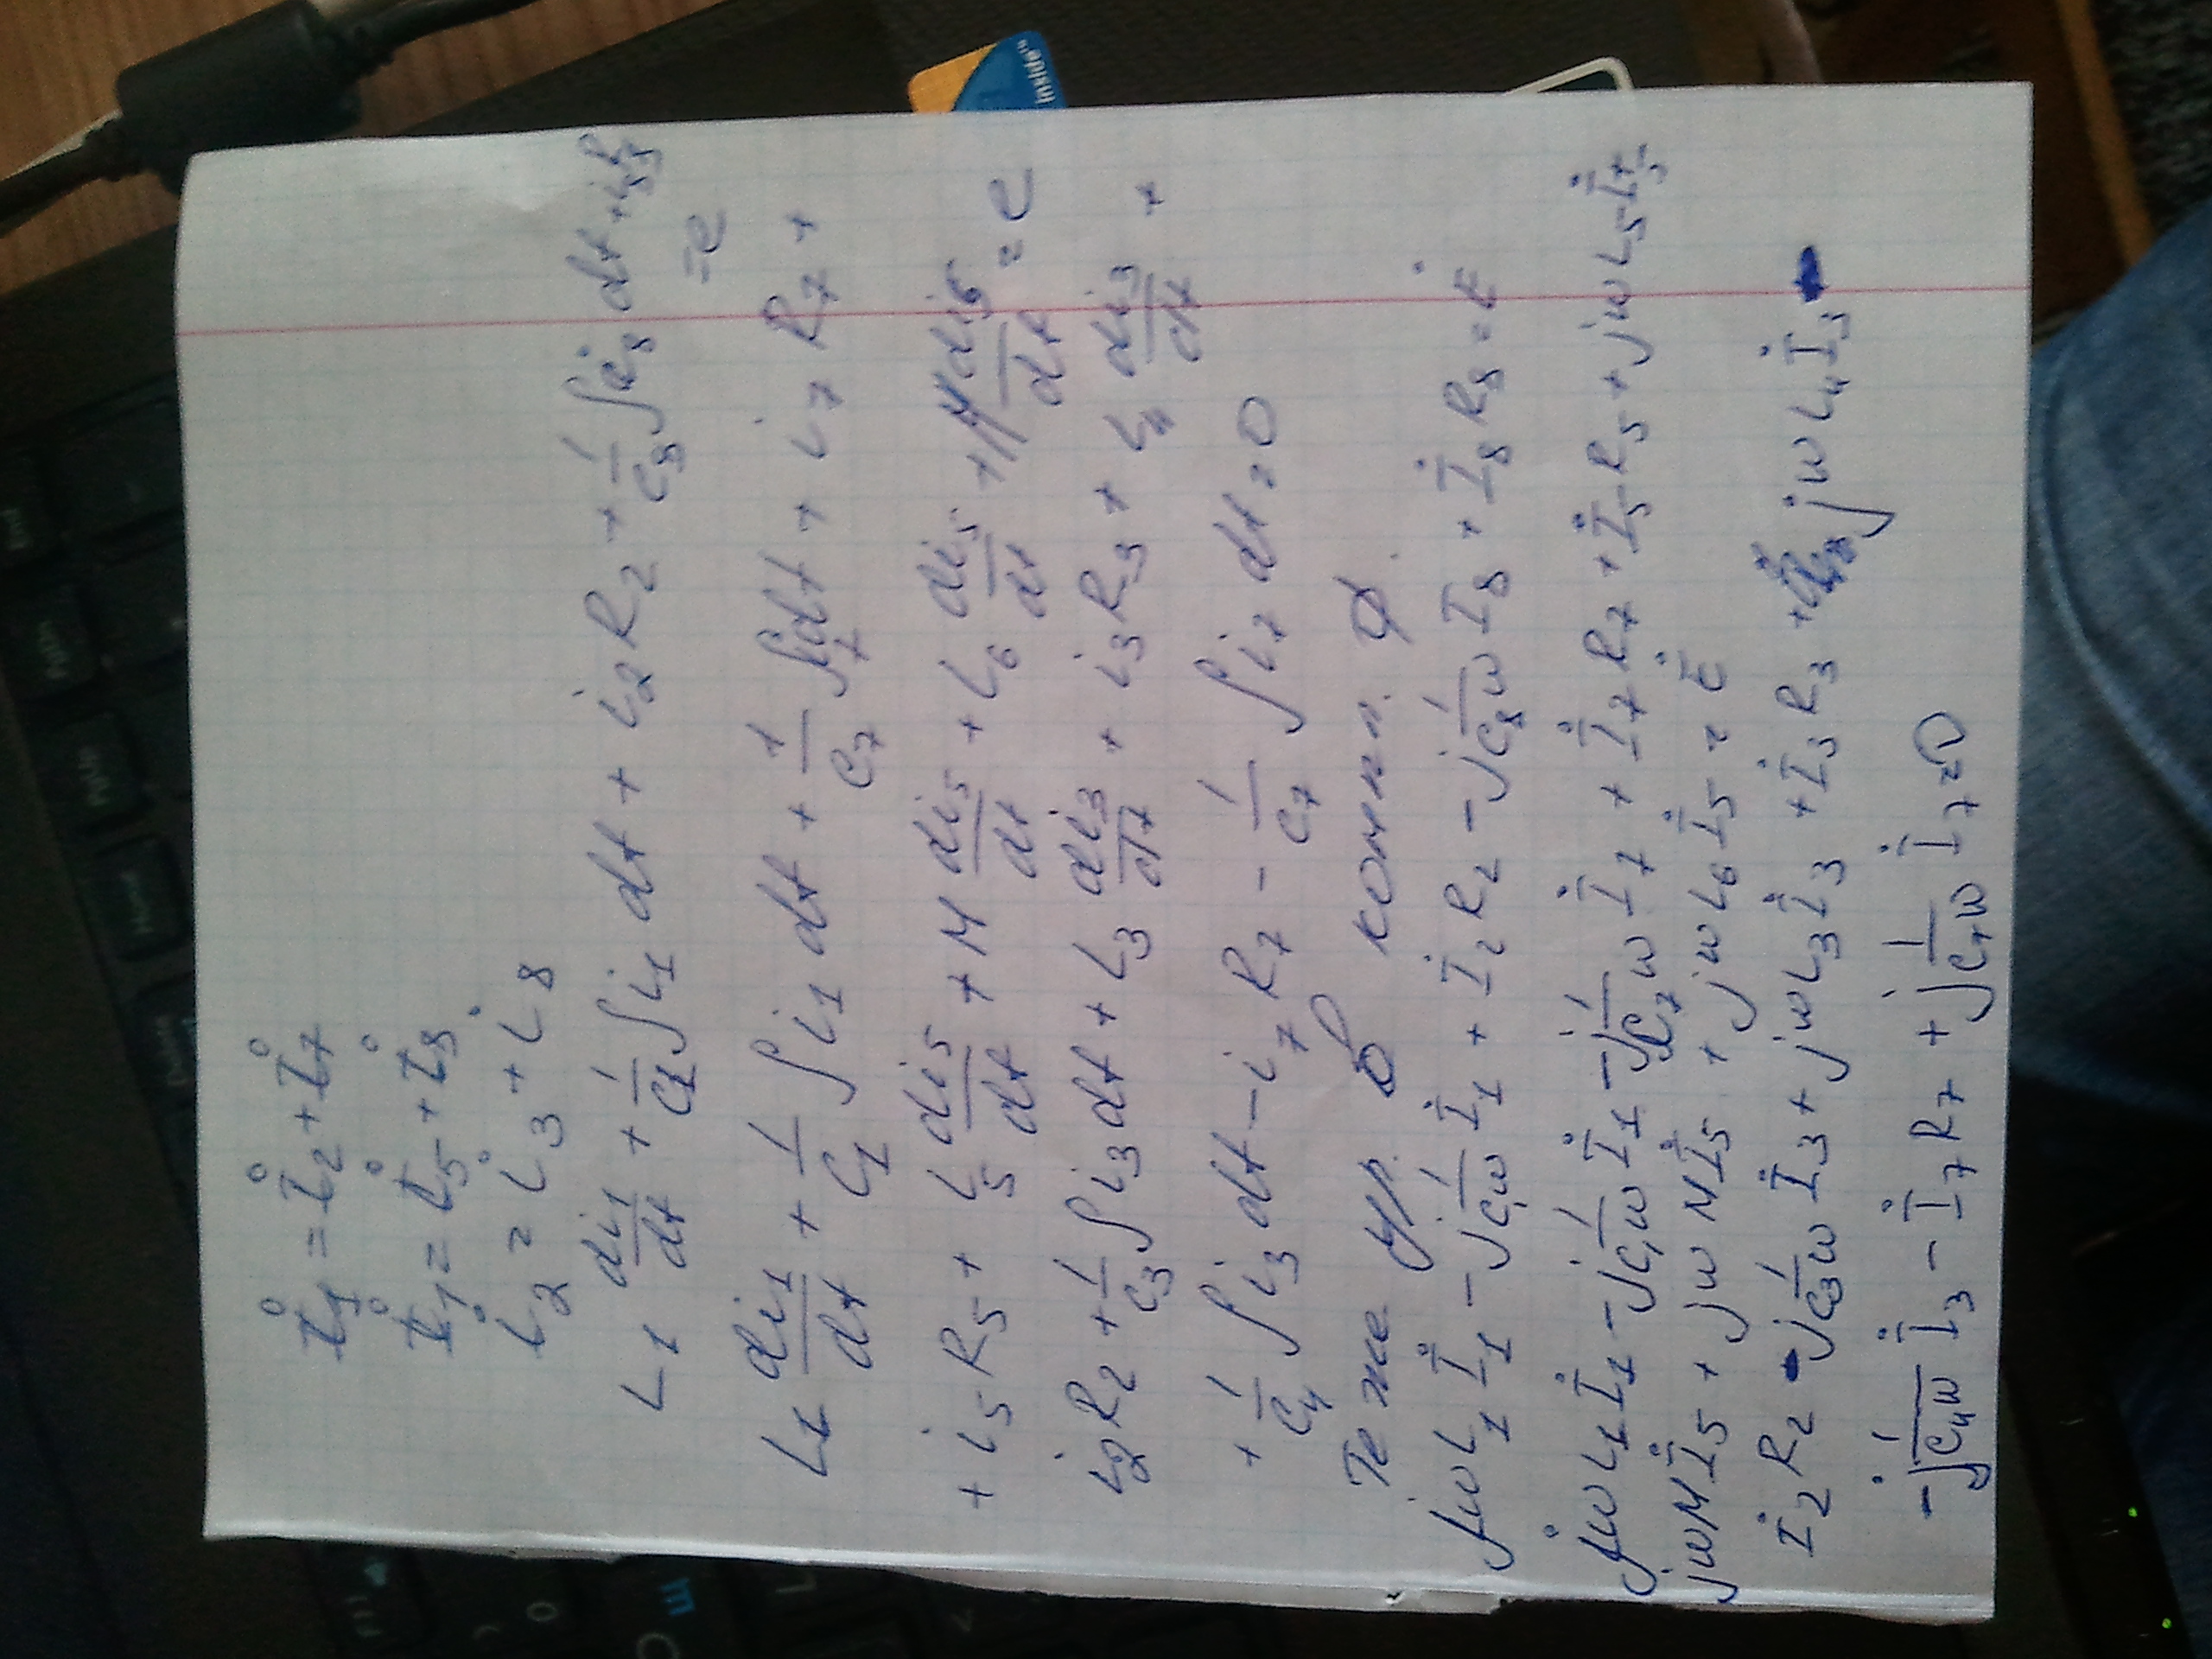 i₁ = i₂ + i₇
i₁ = i₅ + i₈
i₂ = i₃ + i₈
L₁ di₁/dt + 1/C₁ ∫i₁ dt + i₂R₂ + 1/C₈ ∫i₈ dt + i₈R₈ = e
L₁ di₁/dt + 1/C₁ ∫i₁ dt + 1/C₇ ∫i₇ dt + i₇R₇ +
+ i₅R₅ + L₅ di₅/dt + M di₅/dt + L₆ di₅/dt + M di₅/dt = e
i₂R₂ + 1/C₃ ∫i₃ dt + L₃ di₃/dt + i₃R₃ + L₄ di₃/dt +
+ 1/C₄ ∫i₃ dt − i₇R₇ − 1/C₇ ∫i₇ dt = 0
Те же ур. в компл. ф.
jωL₁İ₁ − j 1/C₁ω İ₁ + İ₂R₂ − j 1/C₈ω İ₈ + İ₈R₈ = Ė
jωL₁İ₁ − j 1/C₁ω İ₁ − j 1/C₇ω İ₇ + İ₇R₇ + İ₅R₅ + jωL₅İ₅ +
jωMİ₅ + jωMİ₅ + jωL₆İ₅ = Ė
İ₂R₂ − j 1/C₃ω İ₃ + jωL₃İ₃ + İ₃R₃ + jωL₄İ₃
− j 1/C₄ω İ₃ − İ₇R₇ + j 1/C₇ω İ₇ = 0
inside™